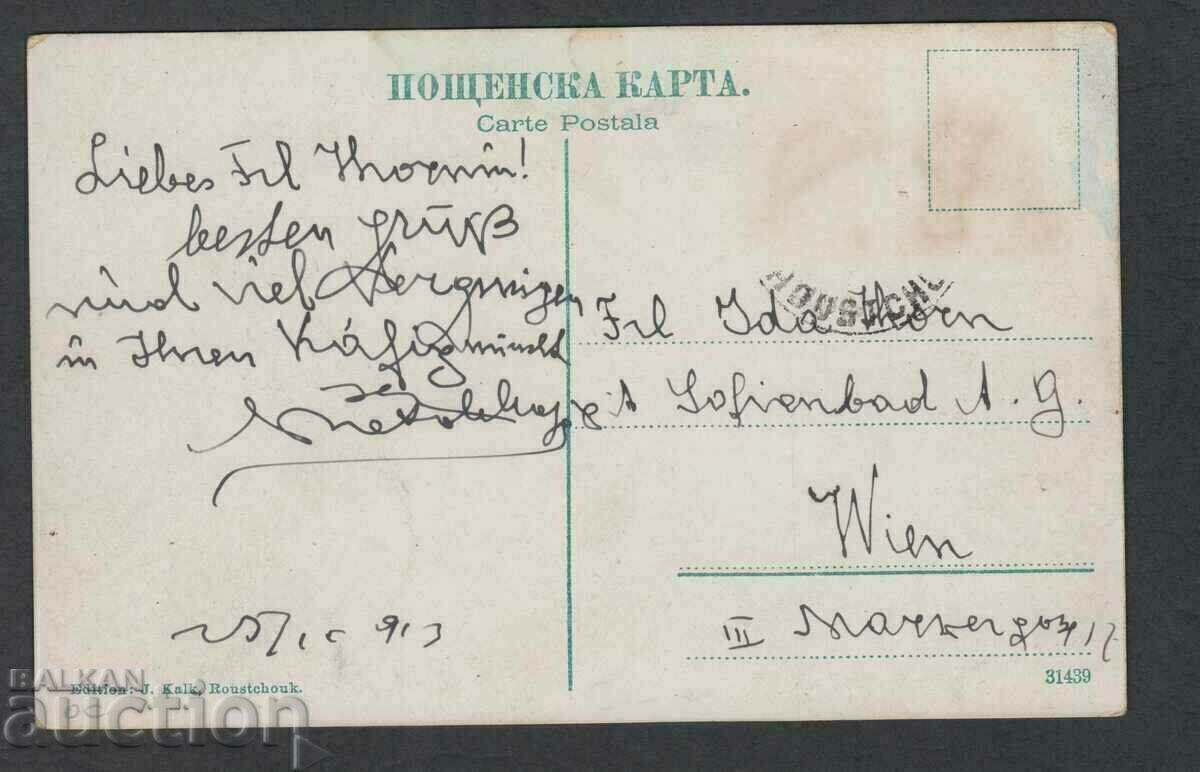 ПОЩЕНСКА КАРТА.
Carte Postala
Liebes Frl Thornin!
besten grüß
und viel Vergnügen
in Ihren Käfig wünscht
ROUSTCHU
Frl Ida Thorn
Sofienbad A. G.
Wien
III Marxergasse 17
913
Edition: J. Kalk, Roustchouk.
31439
BALKAN
auction